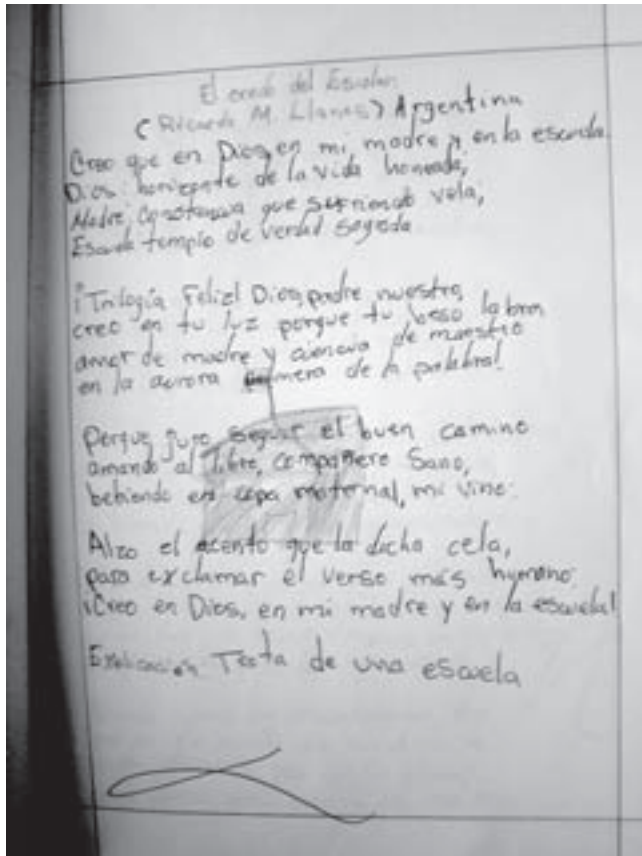 El credo del Escolar
(Ricardo M. Llanes) Argentina
Creo que en Dios, en mi madre y en la escuela
Dios: horizonte de la vida honrada;
Madre; constancia que sufriendo vela,
Escuela templo de verdad sagrada
¡Trilogía Feliz! Dios, padre nuestro,
creo en tu luz porque tu beso labra
amor de madre y ciencia de maestro
en la aurora primera de la palabra!
Porque juro seguir el buen camino
amando al libro, compañero Sano,
bebiendo en copa maternal, mi vino.
Alzo el acento que la dicha cela,
para exclamar el verso más humano:
¡Creo en Dios, en mi madre y en la escuela!
Explicación Trata de una escuela